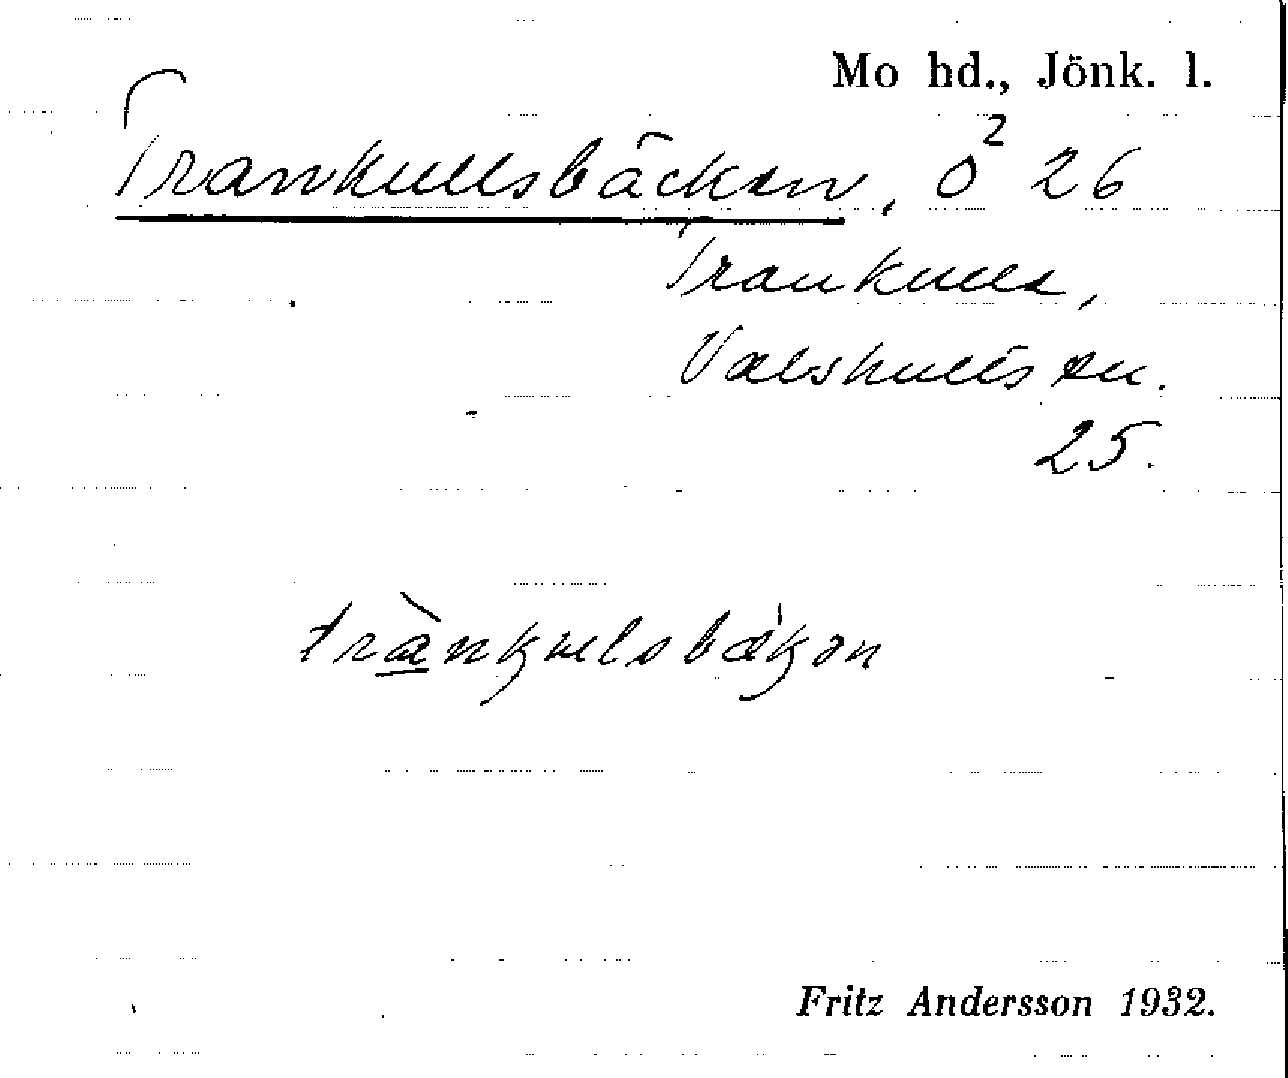 Mo hd., Jönk. l.
Trankullsbäcken, ö² 26
Trankulla,
Valskulls sn.
25.
trànkulsbækən
Fritz Andersson 1932.